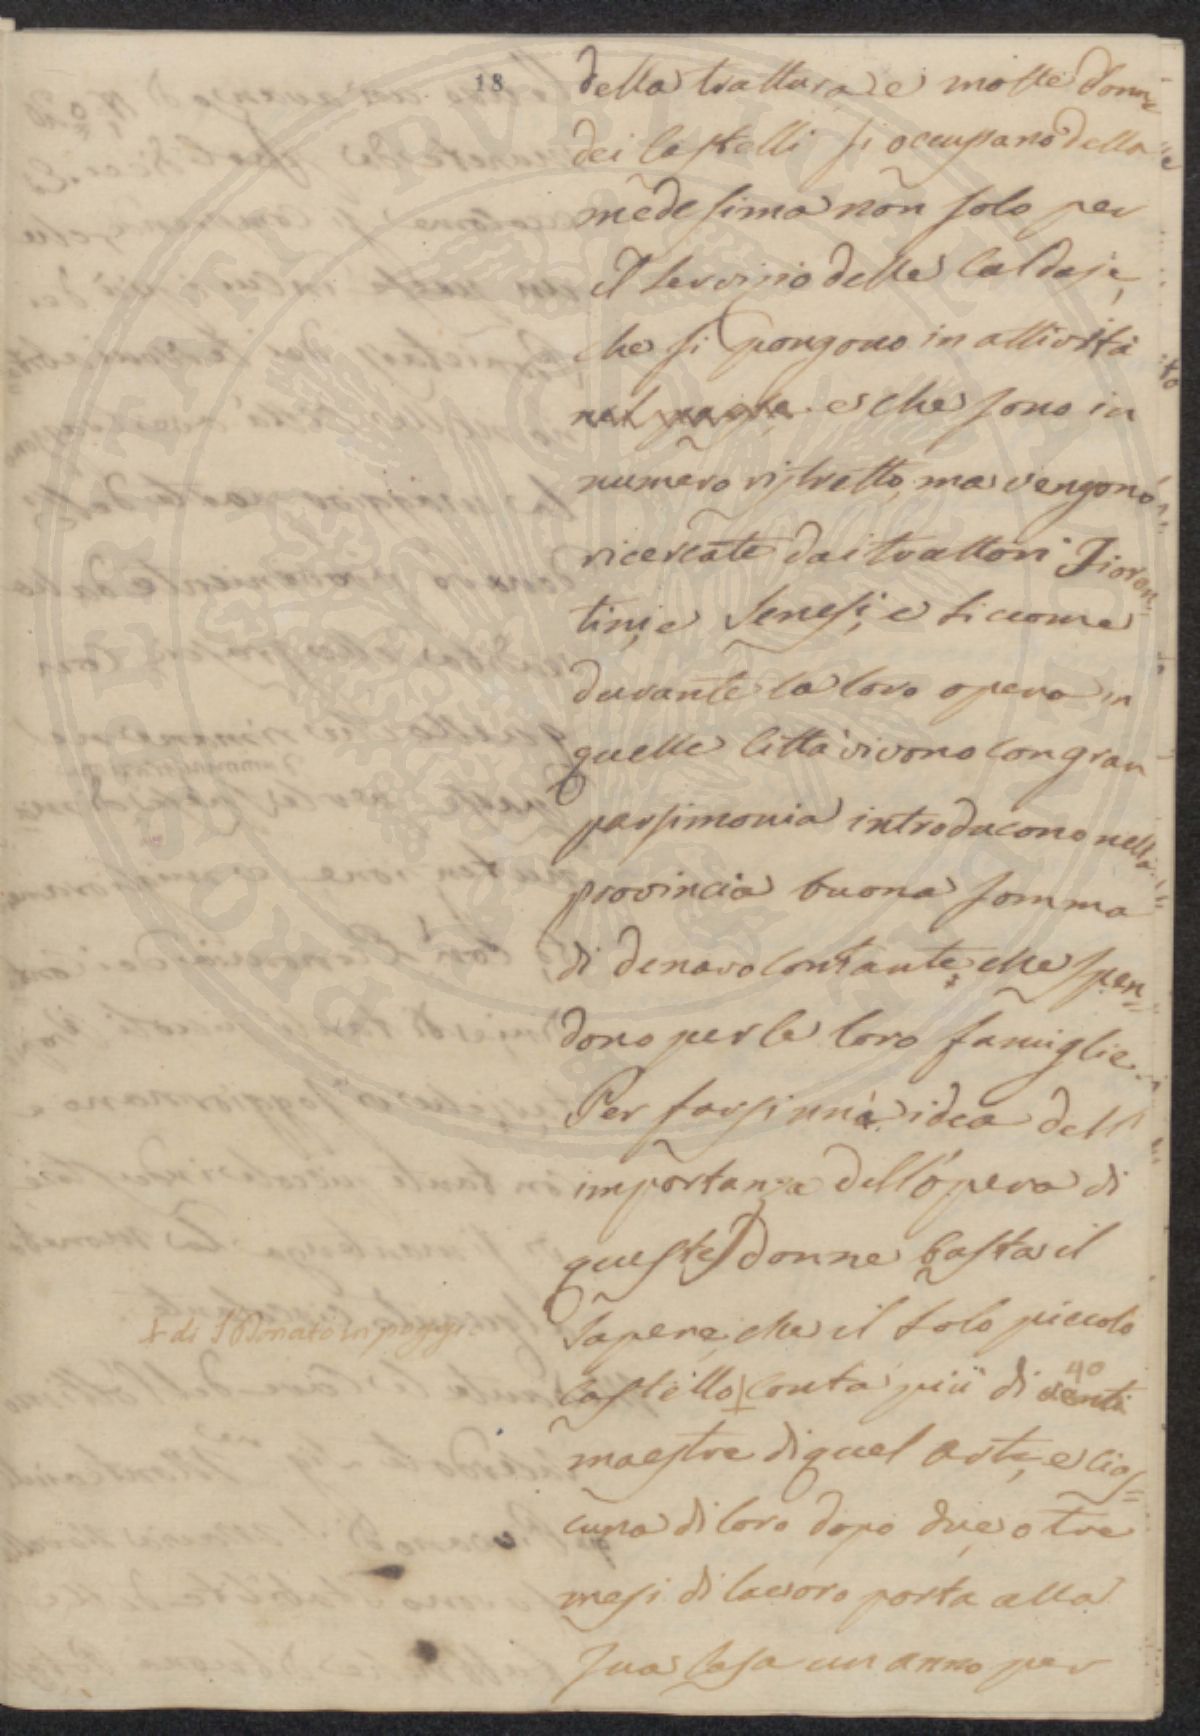 18
della trattura, e molte donne
dei Castelli si occupano della
medesima non solo per
il servizio delle Caldaje,
che si pongono in attività
e che sono in
numero ristretto, ma vengono
ricercate dai trattori Fioren
tini, e Senesi, e siccome
durante la loro opera in
quelle Città vivono con gran
parsimonia introducono nella
provincia buona somma
di denaro contante, che spen=
dono per le loro famiglie.
Per farsi una idea dell'
importanza dell'opera di
queste donne basta il
sapere, che il solo piccolo
+ di S. Donato in poggio
castello + conta più di venti 40
maestre di quel arte, e cias=
cuna di loro dopo due, o tre
mesi di lavoro porta alla
sua casa un anno per